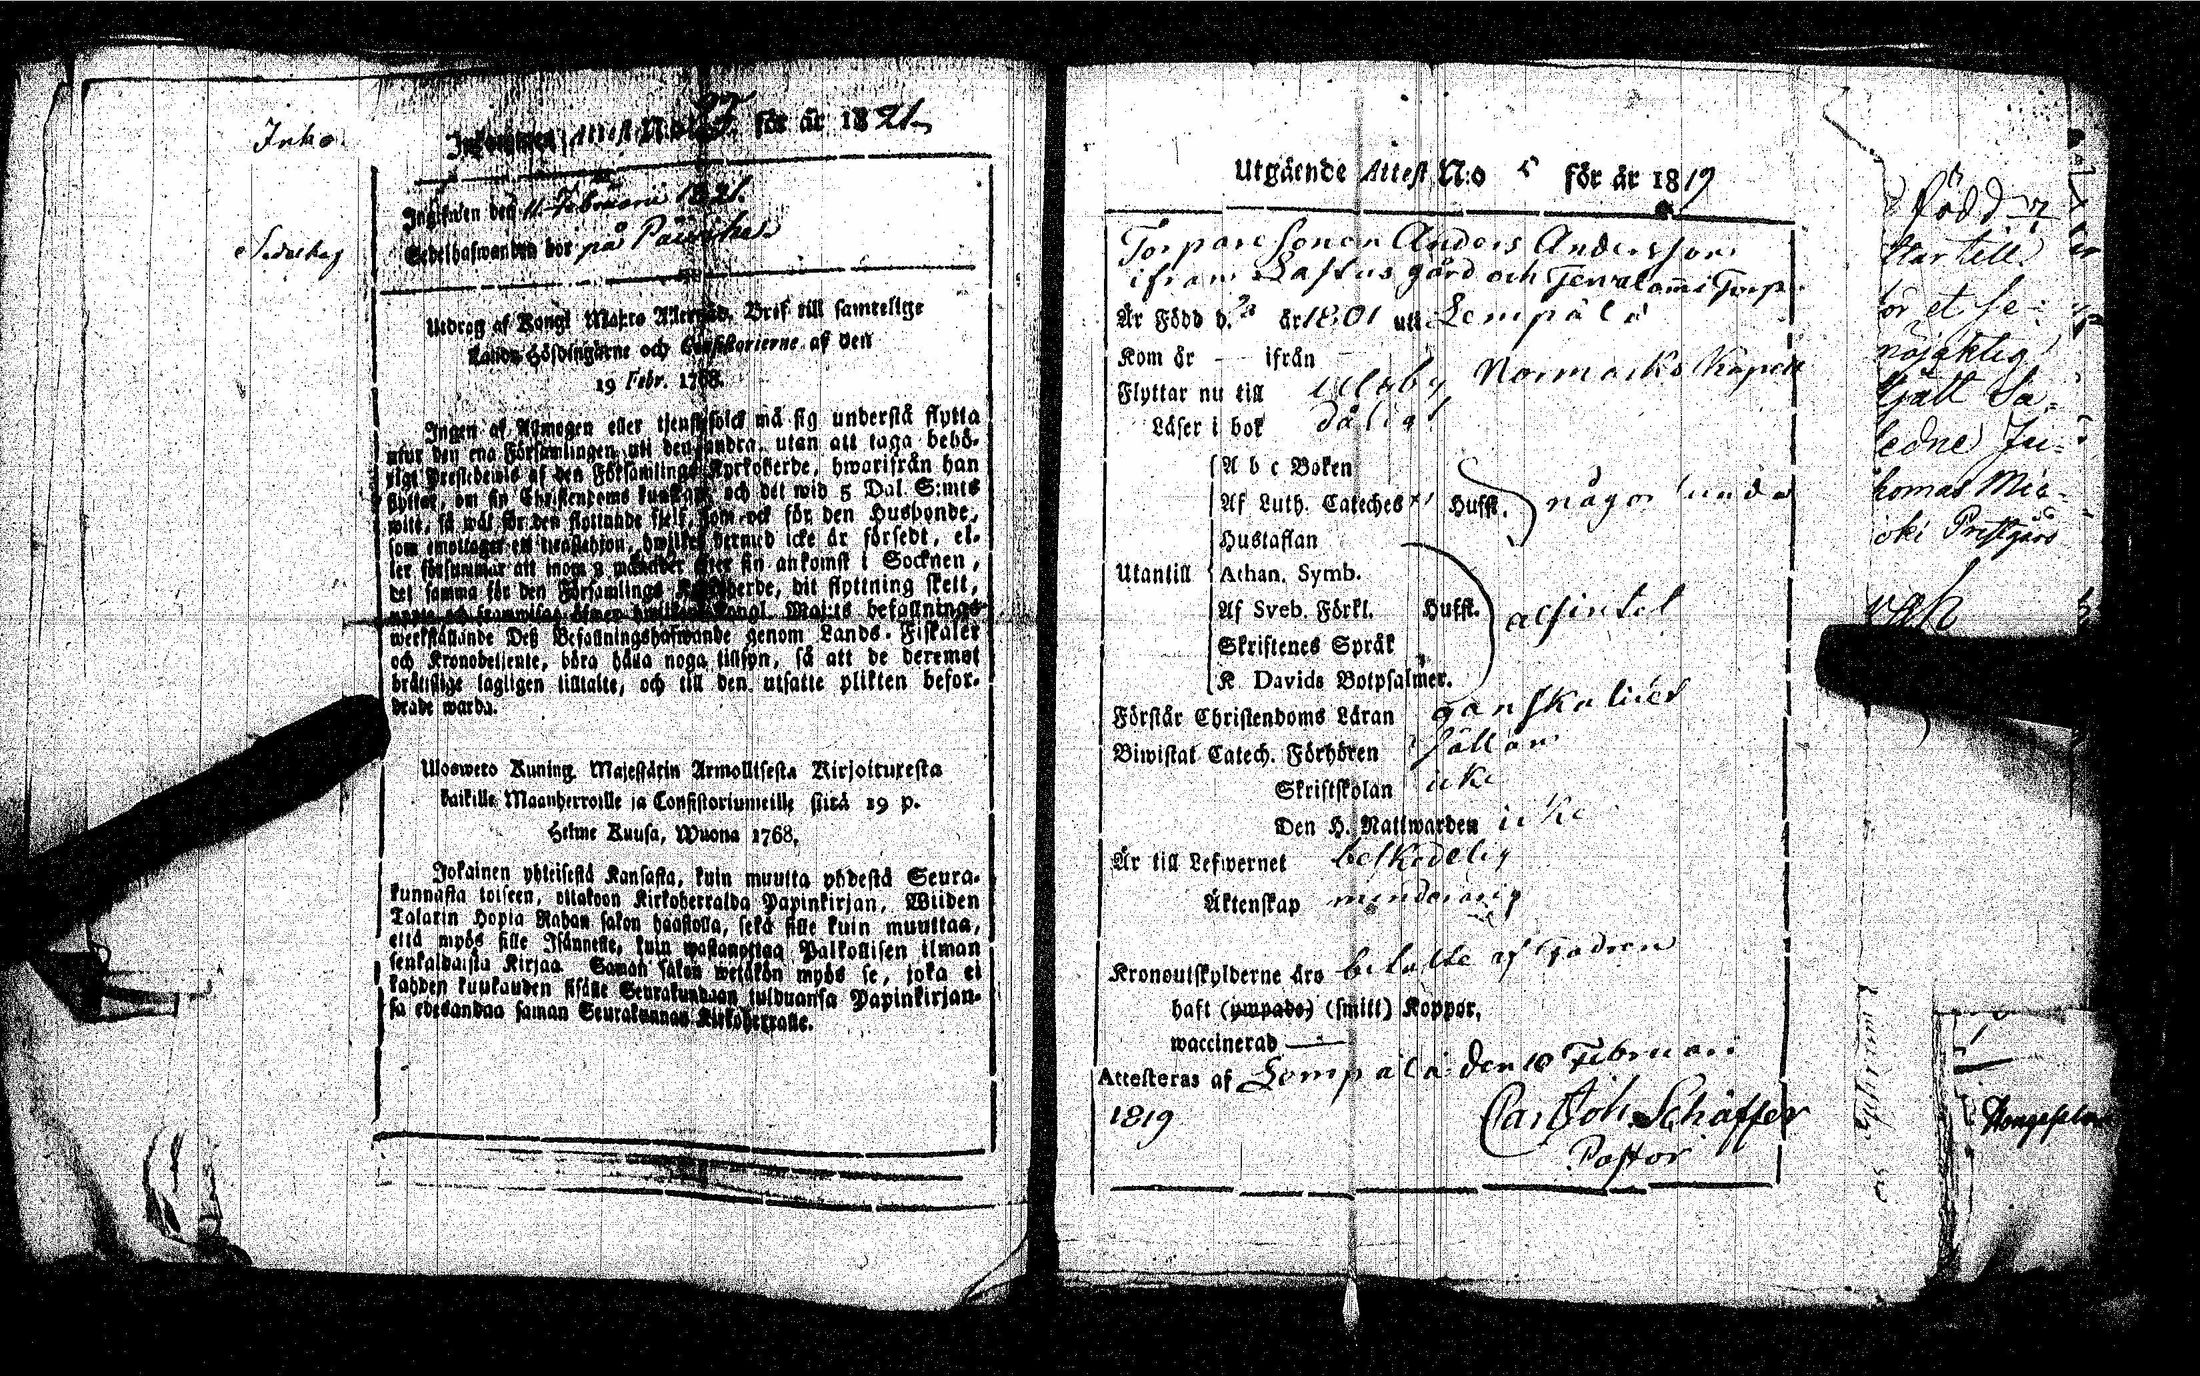 Inko
Sedelhaf
Inkommen Attest N:o 27. för år 1821.
Ingifwen den 11 Februarii 1821.
Sedelhafwanden bor på
Utdrag af Kongl Maj:ts Allernåd. Bref till samtelige
Lands-Höfdingarne och Consistorierne af den
19 Febr. 1768.
Ingen af Allmogen eller tjenstefolck må sig understå flytta
utur den ena Församlingen uti den andra, utan att taga behö-
rigt Prestebewis af den Församlings Kyrkoherde, hwarifrån han
flyttar, om sin Christendoms kunskap, och det wid 5 Dal. S:mts
wite, så wäl för den flyttande sjelf, som ock för den Husbonde,
som emottager ett tienstehjon, hwilket dermed icke är försedt, el-
ler försummar att inom 2 månader efter sin ankomst i Socknen,
det samma för den Församlings Kyrkoherde, dit flyttning skett,
uppte och framwisa; öfwer hwilken Kongl. Maj:ts befallnings
werkställande Deß Befallningshafwande genom Lands-Fiskaler
och Kronobetjente, böra hålla noga tillsyn, så att de deremot
bråttslige lagligen tilltalte, och till den utsatte plikten befor-
drade warda.
Ulosweto Kuning. Majestätin Armollisesta Kirjoituxesta
kaikille Maanherroille ja Consistoriumeille siitä 19 p.
Helme Kuusa, Wuona 1768.
Jokainen yhteisestä Kansasta, kuin muutta yhdestä Seura-
kunnasta toiseen, ottakoon Kirkoherralda Papinkirjan, Wiiden
Talarin Hopia Rahan sakon haastolla, sekä sille kuin muuttaa,
että myös sille Isännelle, kuin wastanottaa Palkollisen ilman
senkaldaista Kirjaa. Saman sakon wetäkön myös se, joka ei
kahden kuukauden sisälle Seurakundaan tulduansa Papinkirjan-
sa edesandaa saman Seurakunnan Kirkoherralle.
Utgående Attest N:o 5 för år 1819
Torpare sonen Anders Andersson
ifrån Lastus gård och Torp
Är Född d. år 1801 uti Lempälä
Kom år — ifrån —
Flyttar nu till Ulfsby Normarks Kapell
Läser i bok dåligt
A b c Boken
Af Luth. Cateches Hufst. någorlunda
Hustaflan
Utantill Athan. Symb.
Af Sveb. Förkl. Hufst. alsintet
Skriftenes Språk
K Davids Botpsalmer.
Förstår Christendoms Läran ganska litet
Biwistat Catech. Förhören sällan
Skriftskolan icke
Den H. Nattwarden icke
Är till Lefwernet beskedelig
Äktenskap minderårig
Kronoutskylderne äro betalte af Fadren
haft (ympade) (smitt) Koppor,
waccinerad —
Attesteras af Lempälä den 10 Februari
1819 Carl Joh. Schäffer
Pastor
född
ttar till
för et
nöjaktig
ledne
homas
oki Prestgård